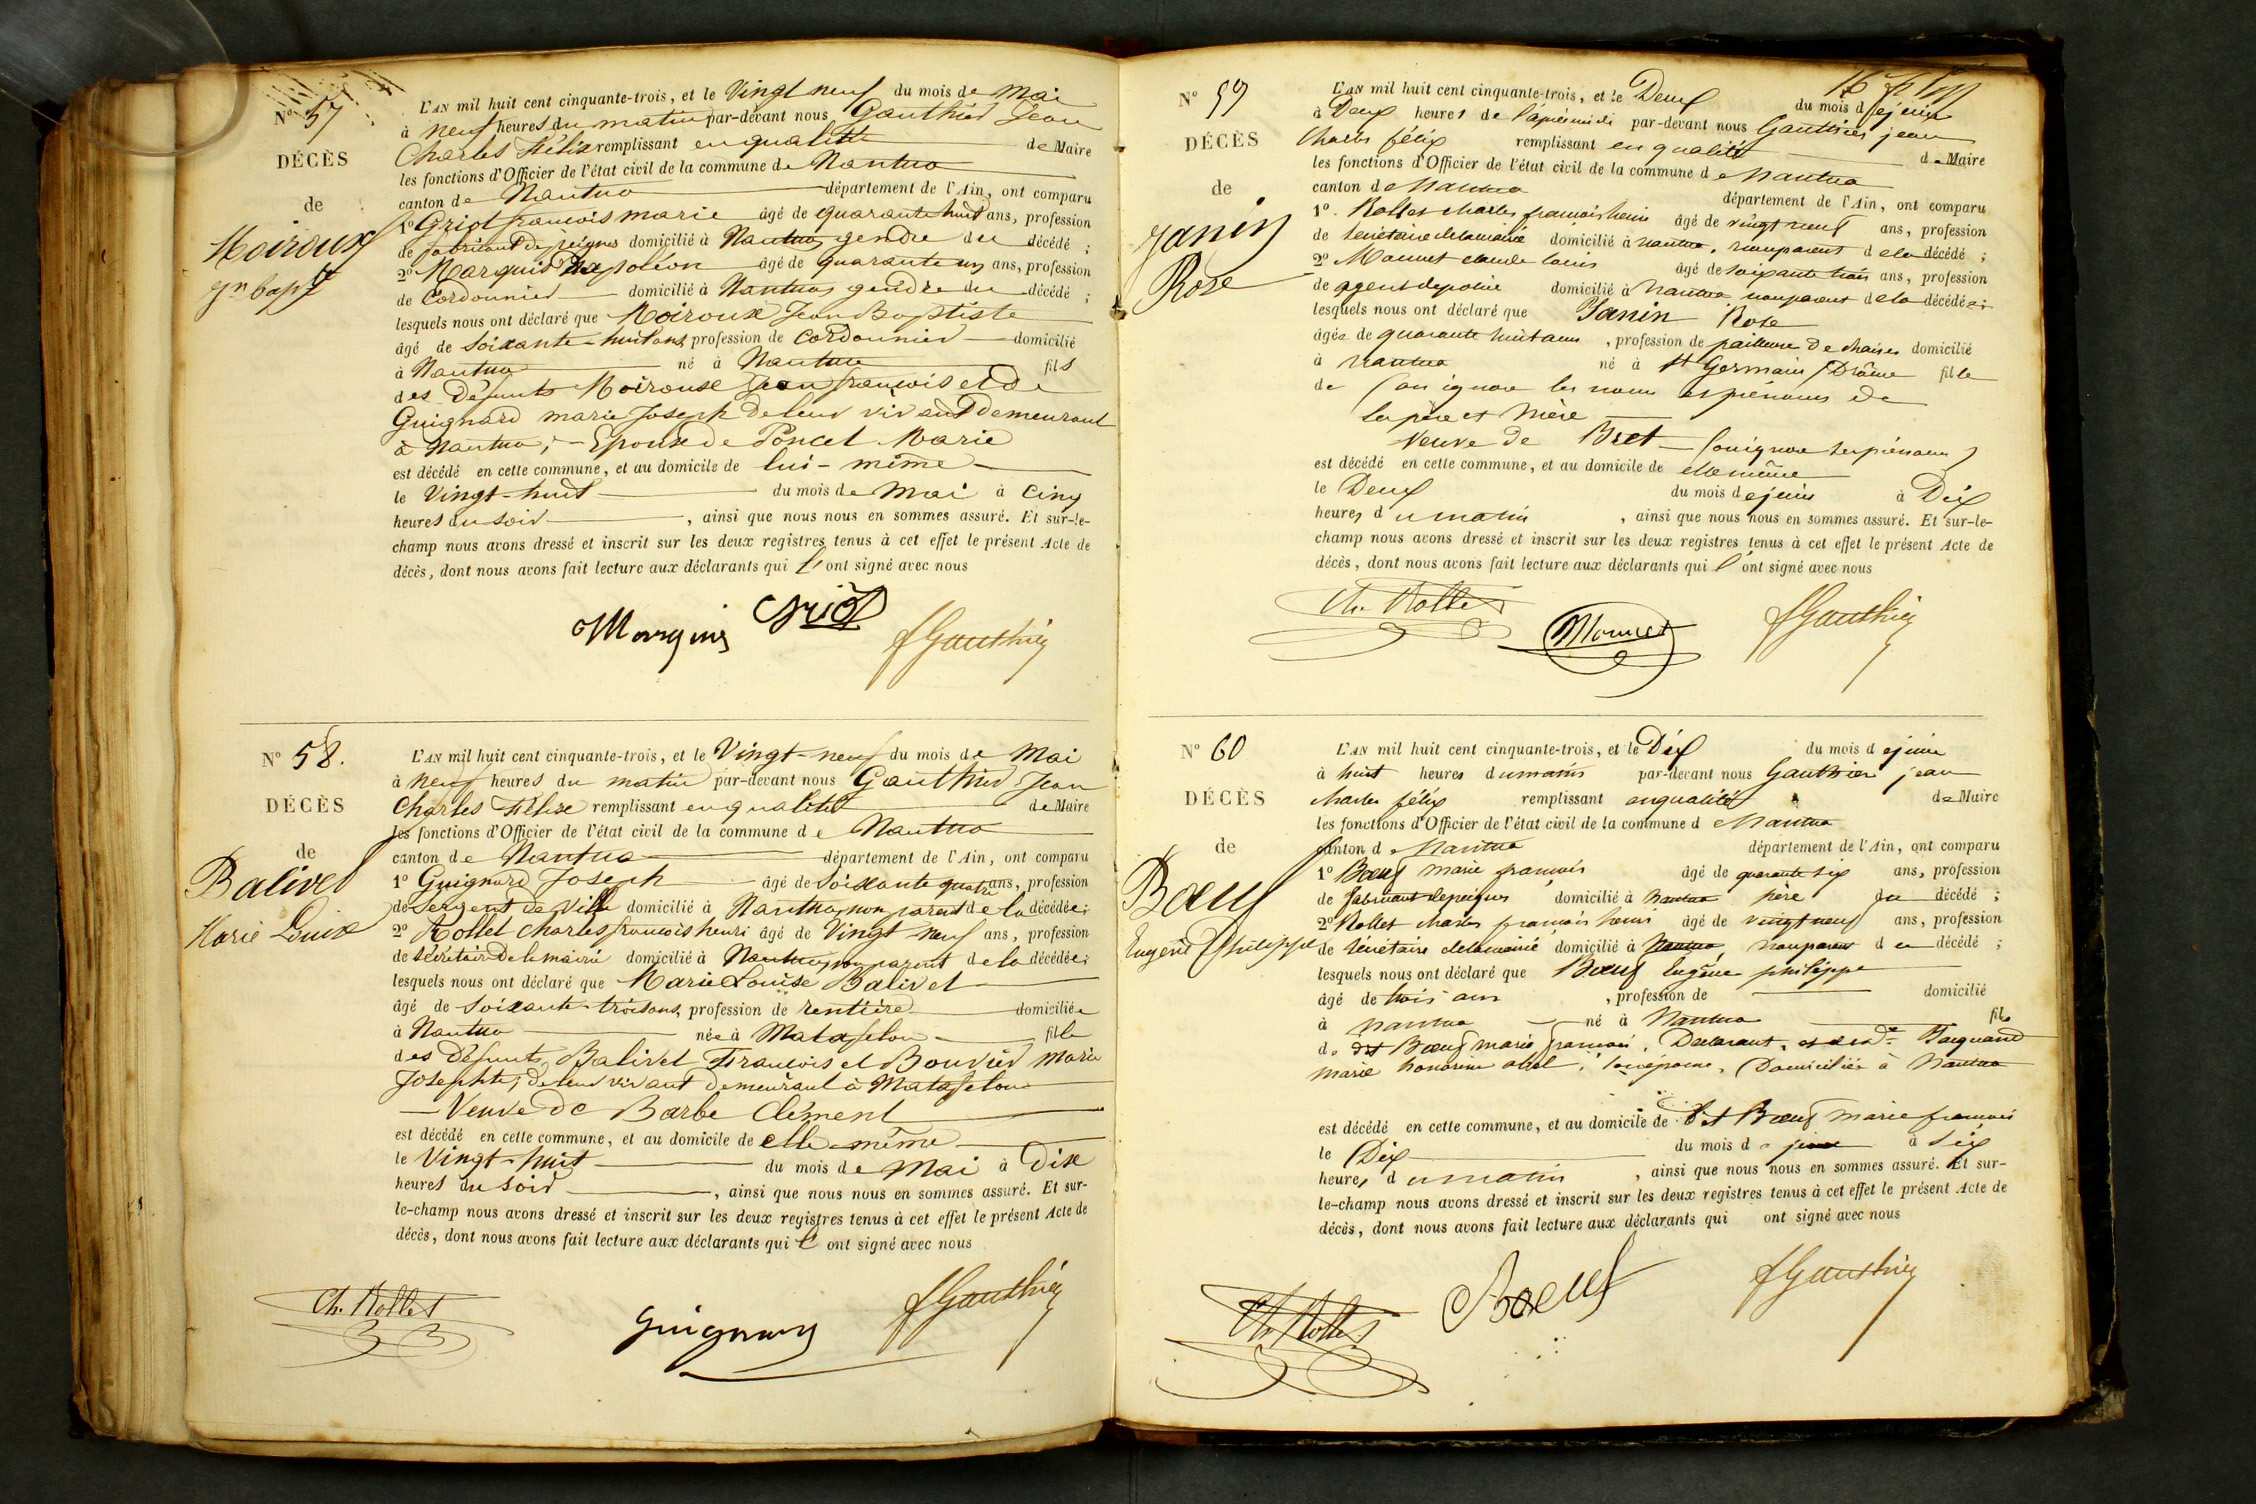 N° 57
DÉCÈS
de
Moiroux
Jn bapt
L'AN mil huit cent cinquante-trois, et le Vingt neuf du mois de Mai
à neuf heures du matin par-devant nous Gauthier Jean
Charles Félix remplissant en qualité de Maire
les fonctions d'Officier de l'état civil de la commune de Nantua
canton de Nantua département de l'Ain, ont comparu
1° Griot françois marie âgé de quarante huit ans, profession
de fabricant de peignes domicilié à Nantua, gendre du décédé ;
2° Marquis Napoléon âgé de quarante un ans, profession
de Cordonnier domicilié à Nantua, gendre du décédé ;
lesquels nous ont déclaré que Moiroux Jean Baptiste
âgé de soixante-huit ans, profession de Cordonnier domicilié
à Nantua né à Nantua fils
des Défunts Moiroux Jean françois et de
Guignard marie Joseph de leur vivant Demeurant
à Nantua ; - Epoux de Poncet Marie
est décédé en cette commune, et au domicile de lui-même
le Vingt-huit du mois de Mai à Cinq
heures du soir , ainsi que nous nous en sommes assuré. Et sur-le-
champ nous avons dressé et inscrit sur les deux registres tenus à cet effet le présent Acte de
décès, dont nous avons fait lecture aux déclarants qui l'ont signé avec nous
Marquis Griot fGauthier
N° 58.
DÉCÈS
de
Balivet
Marie Louise
L'AN mil huit cent cinquante-trois, et le Vingt-neuf du mois de Mai
à neuf heures du matin par-devant nous Gauthier Jean
Charles Félix remplissant en qualité de Maire
les fonctions d'Officier de l'état civil de la commune de Nantua
canton de Nantua département de l'Ain, ont comparu
1° Guignard Joseph âgé de Soixante quatre ans, profession
de Sergent de Ville domicilié à Nantua, non parent de la décédée ;
2° Rollet Charles françois henri âgé de Vingt-neuf ans, profession
de Secrétaire de la mairie domicilié à Nantua, non parent de la décédée ;
lesquels nous ont déclaré que Marie Louise Balivet
âgé de soixante-trois ans, profession de rentière domiciliée
à Nantua née à Matafelon fille
des Défunts, Balivet François et Bouvier Marie
Josephte, de leur vivant demeurant à Matafelon
- Veuve de Barbe Clément
est décédé en cette commune, et au domicile de elle-même
le Vingt-huit du mois de Mai à Dix
heures du soir , ainsi que nous nous en sommes assuré. Et sur-
le-champ nous avons dressé et inscrit sur les deux registres tenus à cet effet le présent Acte de
décès, dont nous avons fait lecture aux déclarants qui l'ont signé avec nous
Ch. Rollet Guignard fGauthier
N° 59
DÉCÈS
de
Janin
Rose
L'AN mil huit cent cinquante-trois, et le Deux du mois de juin
à Deux heures de l'après midi par-devant nous Gauthier jean
Charles félix remplissant en qualité de Maire
les fonctions d'Officier de l'état civil de la commune de Nantua
canton de Nantua département de l'Ain, ont comparu
1°. Rollet charles françois henri âgé de vingt neuf ans, profession
de secrétaire de la mairie domicilié à nantua, non parent de la décédé ;
2° Mounet claude louis âgé de soixante trois ans, profession
de agent de police domicilié à Nantua non parent de la décédée ;
lesquels nous ont déclaré que Janin Rose
âgée de quarante huit ans , profession de pailleuse de chaises domicilié
à Nantua né à St Germain (Drôme fille
de (on ignore les noms et prénoms de
les père et Mère
Veuve de Bret (on ignore ses prénoms)
est décédé en cette commune, et au domicile de elle même
le Deux du mois de juin à Dix
heures du matin , ainsi que nous nous en sommes assuré. Et sur-le-
champ nous avons dressé et inscrit sur les deux registres tenus à cet effet le présent Acte de
décès, dont nous avons fait lecture aux déclarants qui l'ont signé avec nous
Ch. Rollet Mounet fGauthier
N° 60
DÉCÈS
de
Bœuf
Eugène Philippe
L'AN mil huit cent cinquante-trois, et le Dix du mois de juin
à huit heures du matin par-devant nous Gauthier jean
charles félix remplissant en qualité de Maire
les fonctions d'Officier de l'état civil de la commune de Nantua
canton de Nantua département de l'Ain, ont comparu
1° Bœuf marie françois âgé de quarante six ans, profession
de fabricant de peignes domicilié à Nantua père du décédé ;
2° Rollet charles françois henri âgé de vingt neuf ans, profession
de secrétaire de la mairie domicilié à Nantua, non parent du décédé ;
lesquels nous ont déclaré que Bœuf Eugène philippe
âgé de trois ans , profession de domicilié
à Nantua né à Nantua fils
de dit Bœuf marie françois, Déclarant, et de de Jacquand
marie honorine son épouse, Domiciliée à Nantua
est décédé en cette commune, et au domicile de dit Bœuf marie françois
le Dix du mois de juin à six
heures du matin , ainsi que nous nous en sommes assuré. Et sur-
le-champ nous avons dressé et inscrit sur les deux registres tenus à cet effet le présent Acte de
décès, dont nous avons fait lecture aux déclarants qui ont signé avec nous
Ch. Rollet Boeuf fGauthier